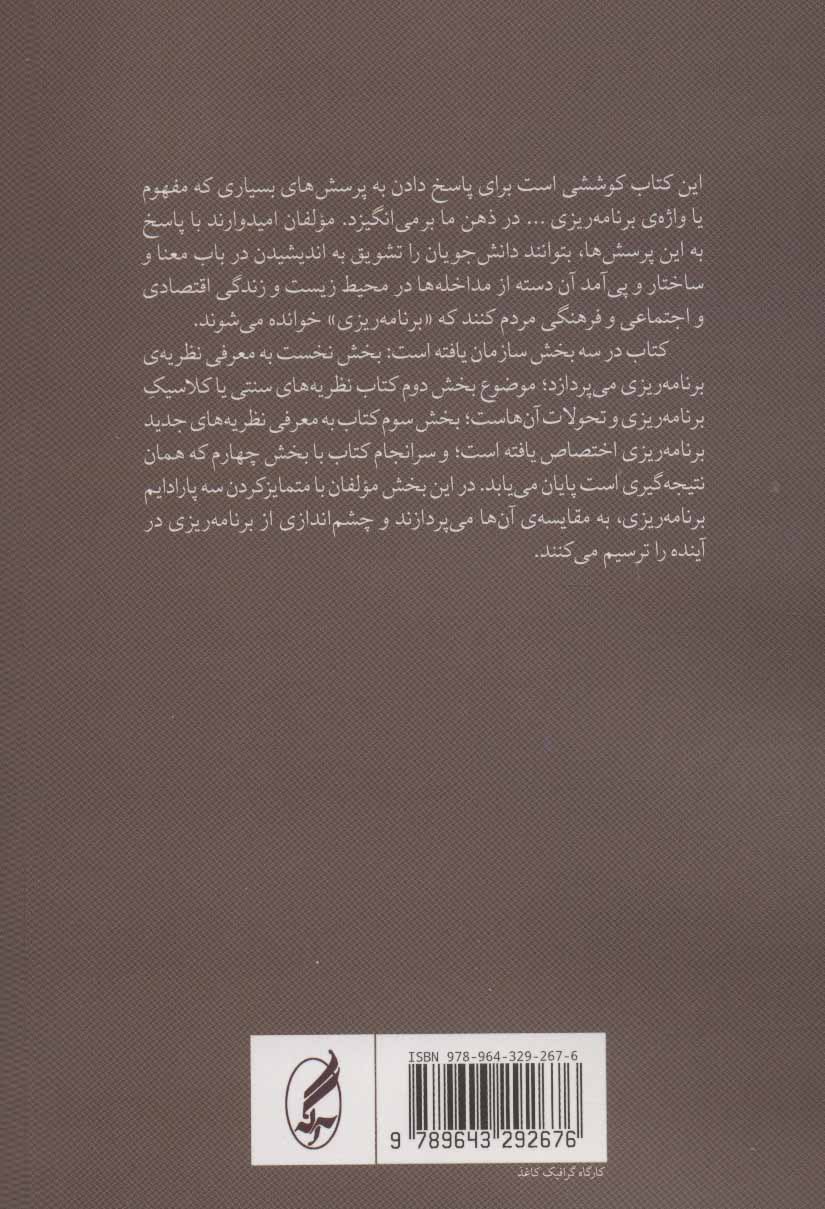 این کتاب کوششی است برای پاسخ دادن به پرسش‌های بسیاری که مفهوم
یا واژه‌ی برنامه‌ریزی ... در ذهن ما برمی‌انگیزد. مؤلفان امیدوارند با پاسخ
به این پرسش‌ها، بتوانند دانش‌جویان را تشویق به اندیشیدن در باب معنا و
ساختار و پی‌آمد آن دسته از مداخله‌ها در محیط زیست و زندگی اقتصادی
و اجتماعی و فرهنگی مردم کنند که «برنامه‌ریزی» خوانده می‌شوند.
کتاب در سه بخش سازمان یافته است: بخش نخست به معرفی نظریه‌ی
برنامه‌ریزی می‌پردازد؛ موضوع بخش دوم کتاب نظریه‌های سنتی یا کلاسیکِ
برنامه‌ریزی و تحولات آن‌هاست؛ بخش سوم کتاب به معرفی نظریه‌های جدید
برنامه‌ریزی اختصاص یافته است؛ و سرانجام کتاب با بخش چهارم که همان
نتیجه‌گیری است پایان می‌یابد. در این بخش مؤلفان با متمایزکردن سه پارادایم
برنامه‌ریزی، به مقایسه‌ی آن‌ها می‌پردازند و چشم‌اندازی از برنامه‌ریزی در
آینده را ترسیم می‌کنند.
ISBN 978-964-329-267-6
9 789643 292676
آگه
کارگاه گرافیک کاغذ